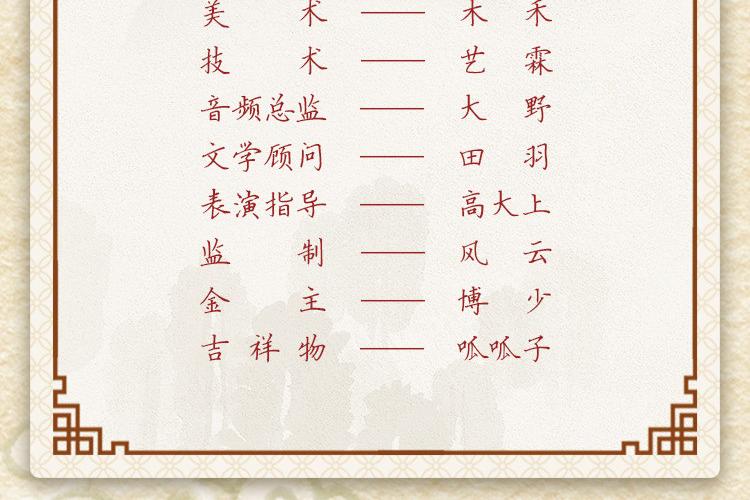 美术——木禾
技术——艺霖
音频总监——大野
文学顾问——田羽
表演指导——高大上
监制——风云
金主——博少
吉祥物——呱呱子